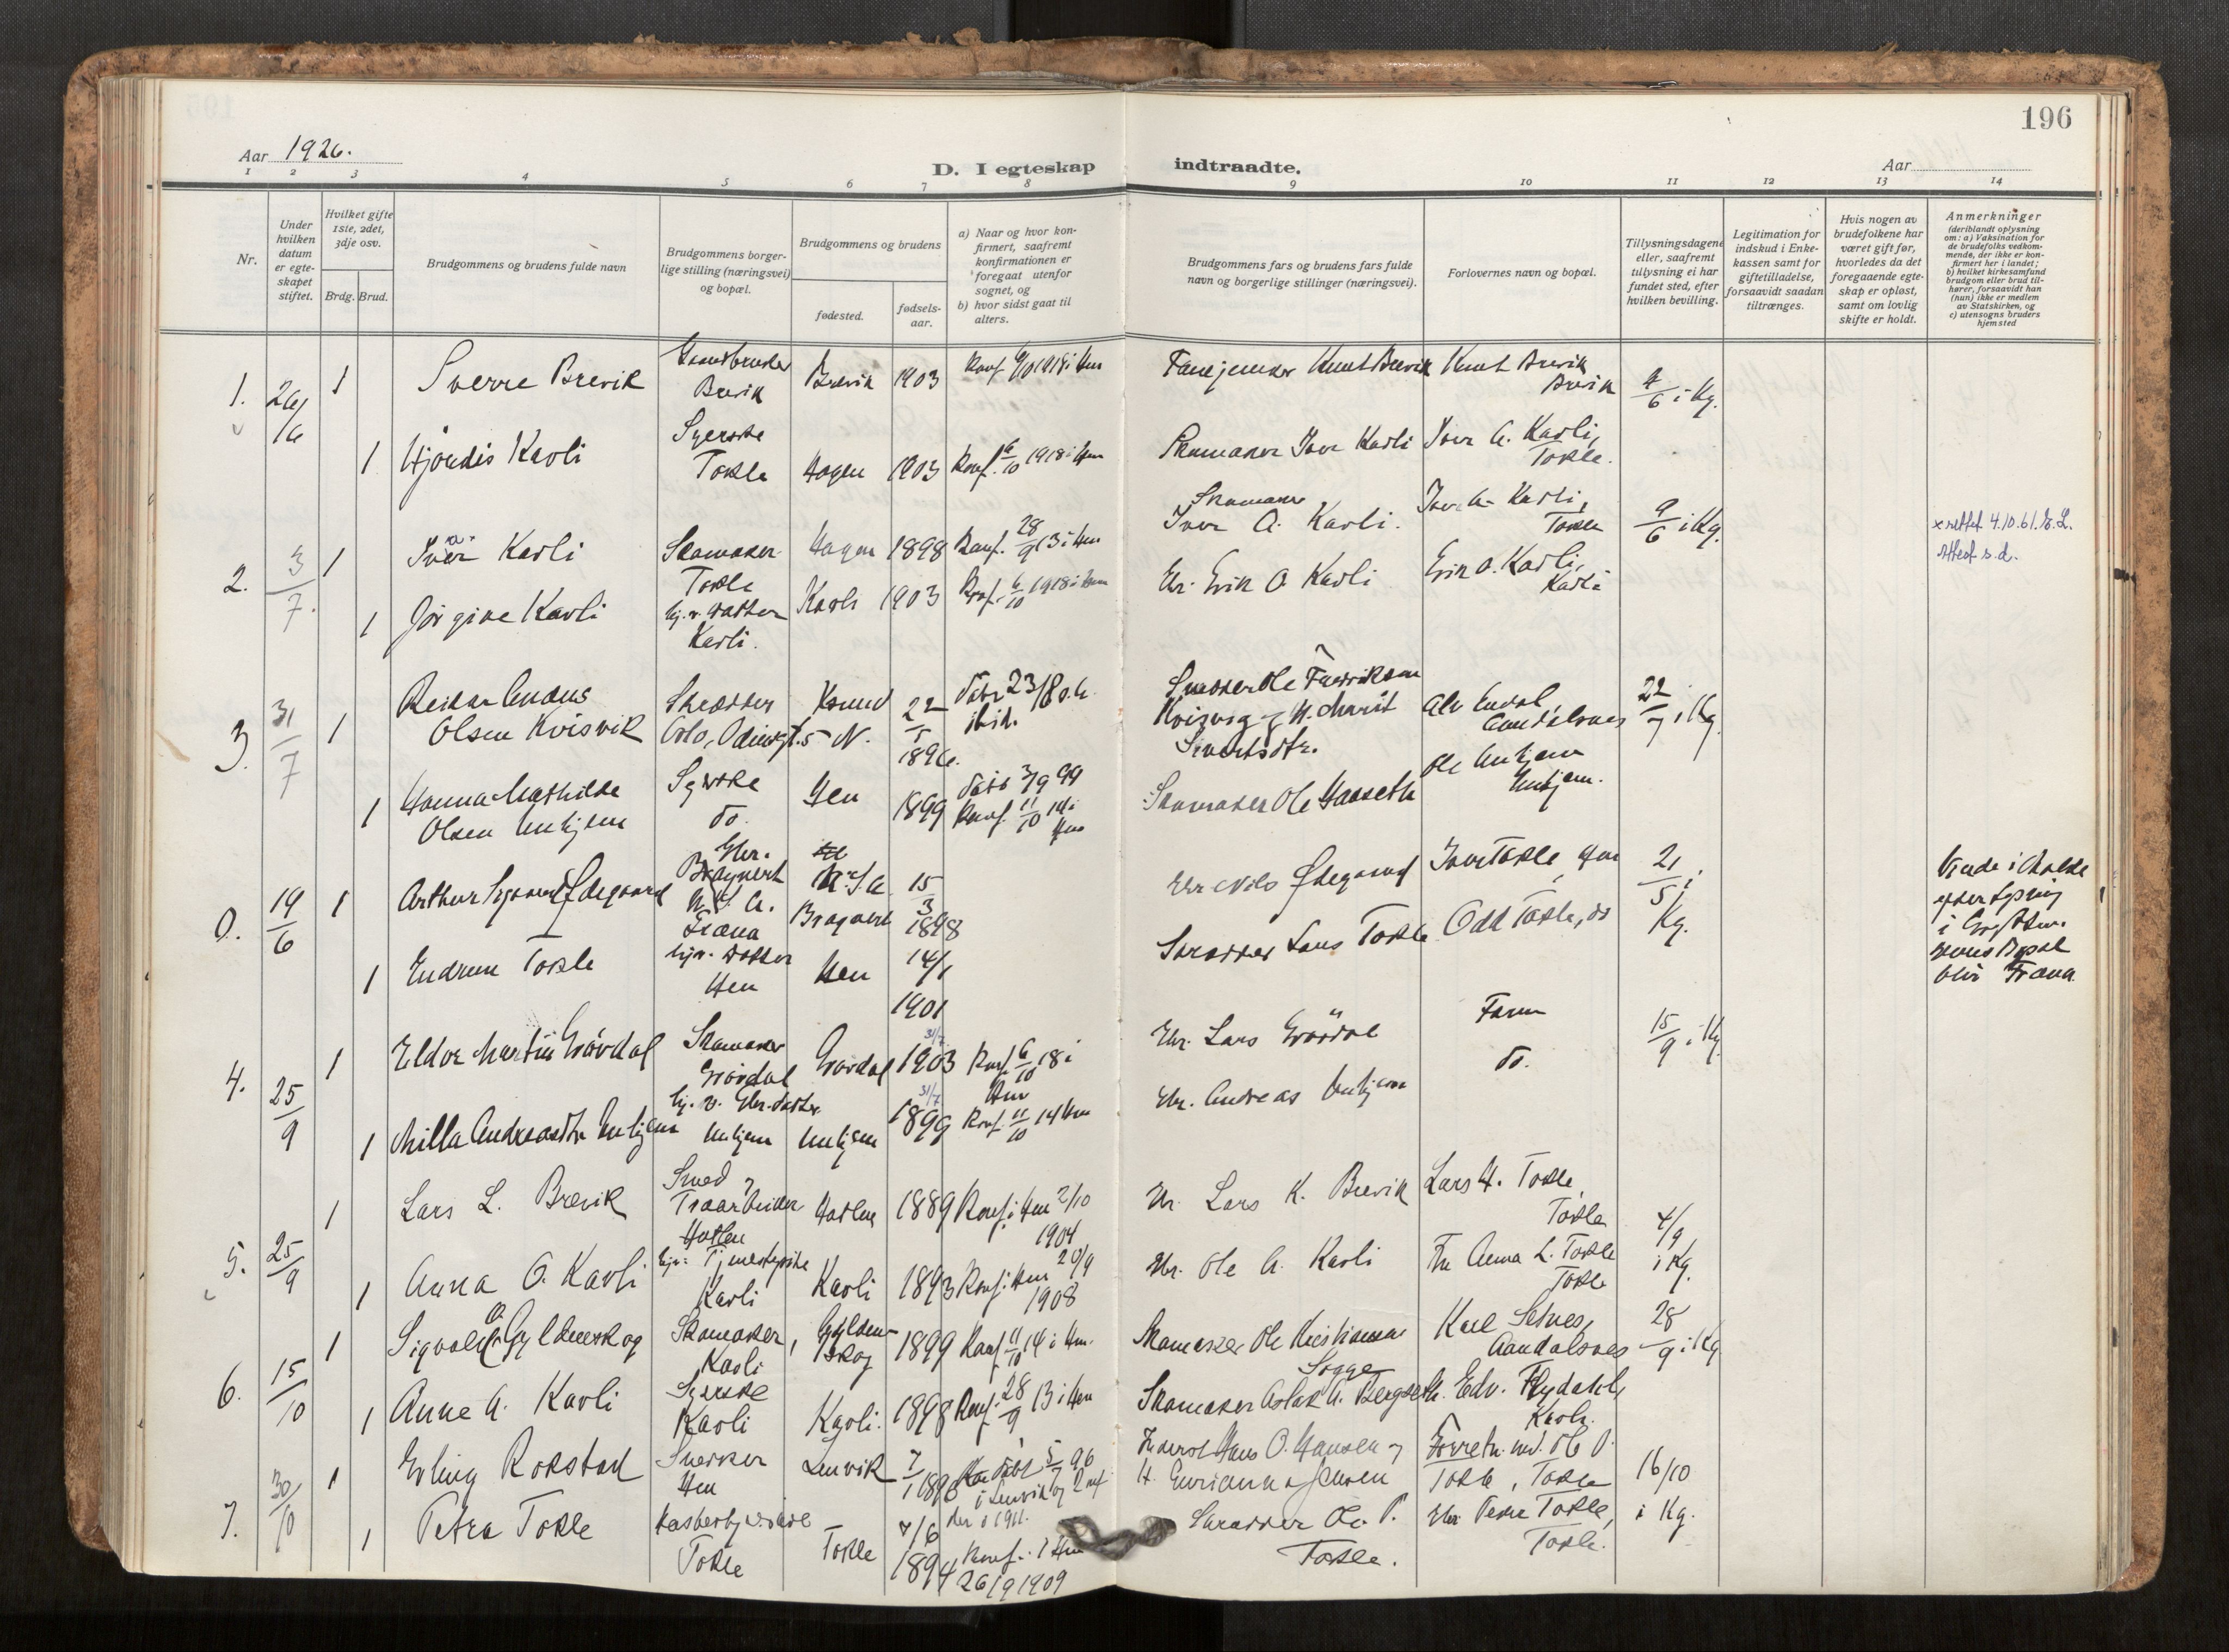 196
Aar 1926.
D. I egteskap indtraadte.
Aar
1 2 3 4 5 6 7 8 9 10 11 12 13 14
Nr.
Under hvilken datum er egteskapet stiftet.
Hvilket gifte 1ste, 2det, 3dje osv.
Brdg. Brud.
Brudgommens og brudens fulde navn
Brudgommens borgerlige stilling (næringsvei) og bopæl.
Brudgommens og brudens
fødested.
fødselsaar.
a) Naar og hvor konfirmert, saafremt konfirmationen er foregaat utenfor sognet, og
b) hvor sidst gaat til alters.
Brudgommens fars og brudens fars fulde navn og borgerlige stillinger (næringsvei).
Forlovernes navn og bopæl.
Tillysningsdagene eller, saafremt tillysning ei har fundet sted, efter hvilken bevilling.
Legitimation for indskud i Enkekassen samt for giftetilladelse, forsaavidt saadan tiltrænges.
Hvis nogen av brudefolkene har været gift før, hvorledes da det foregaaende egteskap er opløst, samt om lovlig skifte er holdt.
Anmerkninger
(deriblandt oplysning om: a) Vaksination for de brudefolks vedkommende, der ikke er konfirmert her i landet;
b) hvilket kirkesamfund brudgom eller brud tilhører, forsaavidt han (hun) ikke er medlem av Statskirken, og
c) utensogns bruders hjemsted
1. 26/6 1 Sverre Brevik Gaardbruker Brevik Brevik 1903 Konf. 6/10 1918 i Hen Knut Brevik Knut Brevik Brevik 9/6 i Kg.
1 Hjørdis Kavli Syerske Tokle Hagen 1903 Konf. 6/10 1918 i Hen Skomaker Iver Kavli Iver A. Kavli, Tokle.
2. 3/7. 1 Ivar Kavli Skomaker Tokle Hagen 1898 Konf. 28/9 13 i Hen Skomaker Iver A. Kavli. Iver A. Kavli, Tokle 9/6 i Kg. x rettet 4.10.61. Attest s.d.
1 Jørgine Kavli hj. v. datter Kavli. Kavli 1903 Konf. 6/10 1918 i Hen Gbr. Erik O. Kavli Erik O. Kavli, Kavli
3. 31/7 1 Reidar Andus Olsen Kvisvik Skrædder Oslo, Odinsgt. 5 Krsund N. 22/5 1896. Døbt 23/8 s.a. ibid. Snedker Ole Kvisvig og H. Marit Sivertsdtr. Alv Aandalsnes 22/7 i Kg.
1 Hanna Mathilde Olsen Unhjem Syerske do. Hen 1899 Døbt 3/9 99 Konf. 11/10 14 i Hen Skomaker Ole Haaseth Ole Unhjem Unhjem.
0. 19/6 1 Arthur Ødegaard Gbr. U.S.A. Fræna 15/3 1898 Gbr. Nils Ødegaard Iver Tokle, Hen 21/5 i Kg. Viede i Molde efter lysning i Grytten. bopæl blir Fræna
1 Gudrun Tokle hjv. datter Hen Hen 14/1 1901 Skrædder Lars Tokle Odd Tokle, do
4. 25/9 1 Eldor Martin Grövdal Skomaker Grövdal Grövdal 31/7 1903 Konf. 6/10 18 i Hen Gbr. Lars Grövdal Faren 15/9 i Kg.
1 Milla Andreasdtr Unhjem hj. v. Gbr. datter Unhjem Unhjem 31/7 1899 Konf. 11/10 14 Hen Gbr. Andreas Unhjem do.
5. 25/9 1 Lars L. Brevik Smed, 1889 Konf. i Hen 2/10 1904 Gbr. Lars K. Brevik Lars H. Tokle, Tokle 4/9 i Kg.
1 Anna O. Kavli hjv. Kavli Kavli 1893 Konf. i Hen 20/9 1908 Gbr. Ole A. Kavli Fru Anna L. Tokle Tokle
6. 15/10 1 Sigvald O. Gyldenskog Skomaker, Kavli Gyldenskog 1899 Konf. 11/10 14 i Hen. Skomaker Ole Kristiansen Sogge Karl Setnes, Aandalsnes 28/9 i Kg.
1 Anne A. Kavli Syerske Kavli Kavli. 1898 Konf. 28/9 13 i Hen Skomaker Aslak A. Bergseth. Edv. Flydahl, Kavli.
7. 30/10 1 Erling Rokstad Snekker Hen Lenvik 7/1 1896 døbt 5/7 96 i Lenvik og konf. der i 1911. Hans O. Hansen og H. Jensen Ole P. Tokle, Tokle 16/10 i Kg.
1 Petra Tokle Tokle Tokle 7/6 1894 Konf. i Hen 26/9 1909 Skrædder Ole P. Tokle. Gbr. Peder Tokle, Tokle.